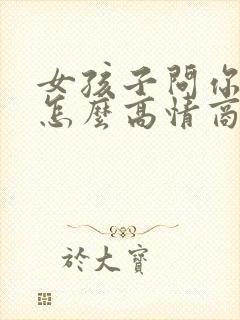 女孩子問你
怎麼高情商
於大寶